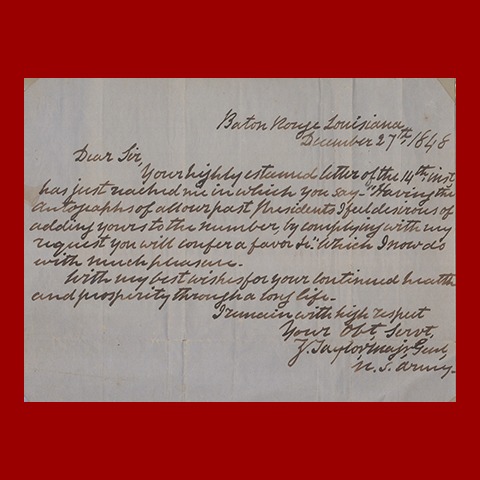 Baton Rouge Louisiana
December 27th 1848
Dear Sir,
Your highly esteemed letter of the 14th inst
has just reached me in which you say "Having the
autographs of all our past Presidents I feel desirous of
adding yours to the number, by complying with my
request you will confer a favor &c." Which I now do
with much pleasure.
With my best wishes for your continued health
and prosperity through a long life.
I remain with high respect
Your Obt, Servt,
Z. Taylor Majr. Genl,
U. S. Army.